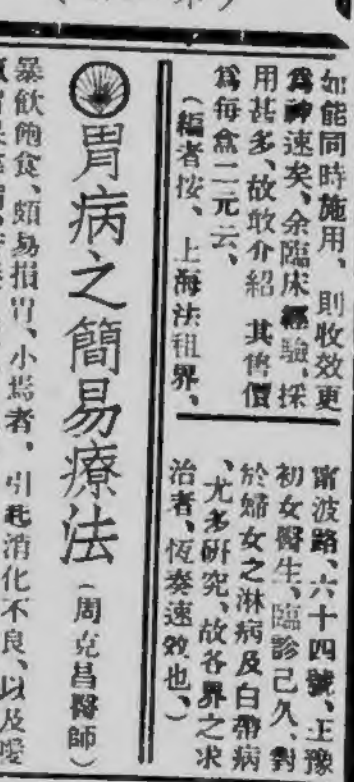 如能同時施用、則收效更
為神速矣、余臨床經驗、採
用甚多、故敢介紹　其售價
為每盒二元云、
（編者按、上海法租界、
甯波路、六十四號、王豫
初女醫生、臨診已久、對
於婦女之淋病及白帶病
、尤多研究、故各界之求
治者、恆奏速效也、）
胃病之簡易療法（周克昌醫師）
暴飲飽食、頗易損胃、小焉者、引起消化不良、以及噯